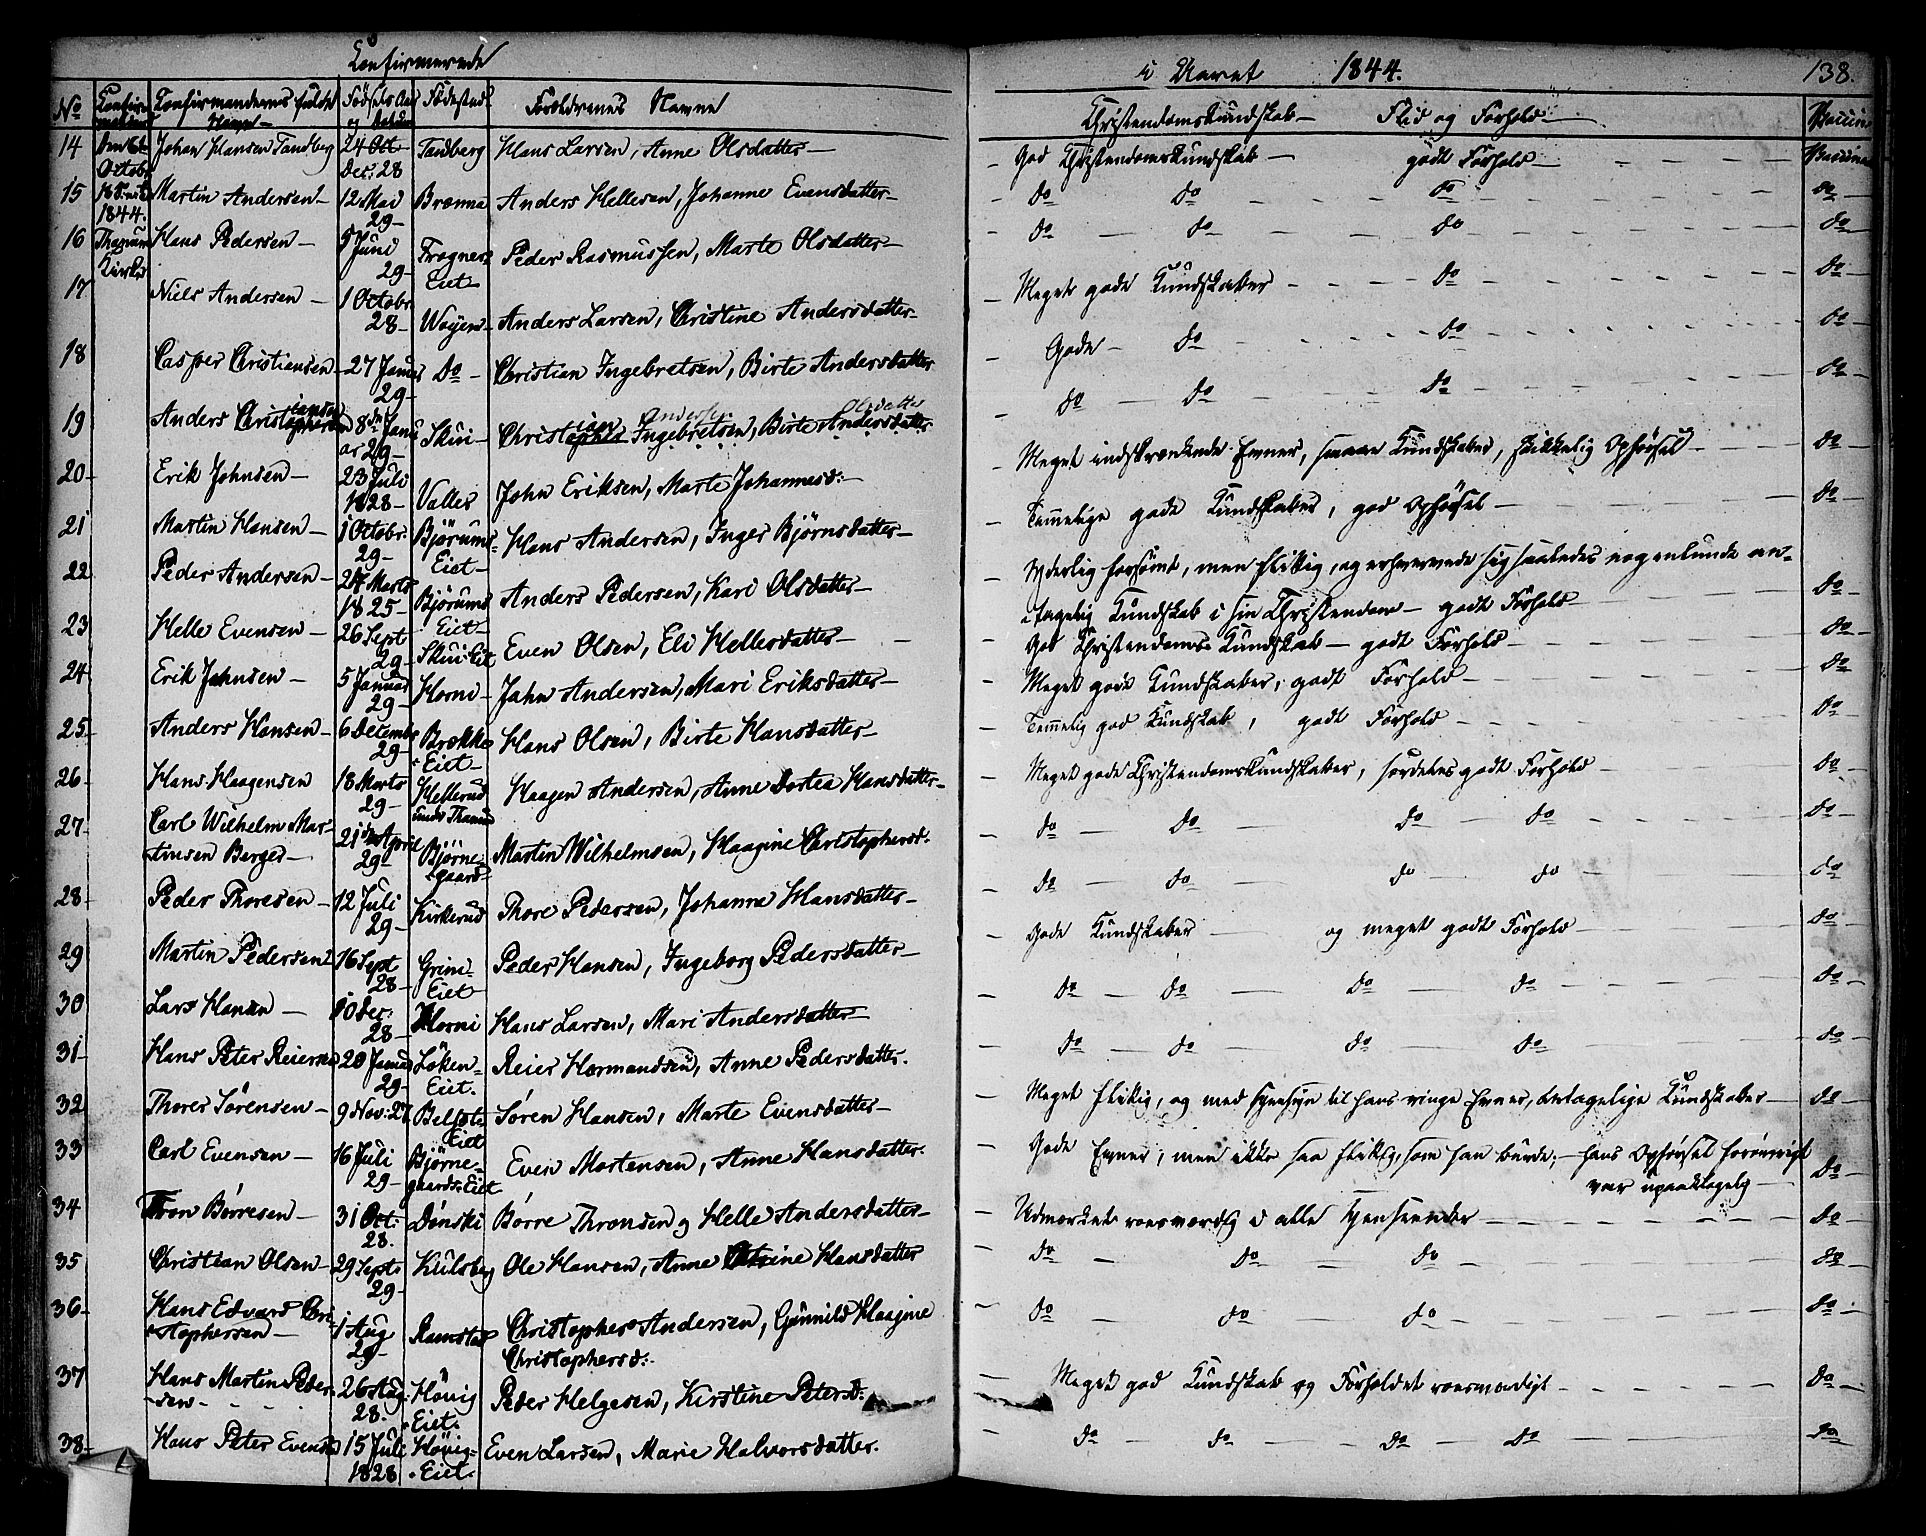 Confirmerede
i Aaret 1844. 138.
No Confirmandernes fulde Navn Fødsels Aar og Datum Fødested Forældrenes Navne Christendomskundskab Flid og Forhold Vaccine
14 Johan Hansen Tandberg 24 Oct Dec: 28 Tandberg Hans Larsen, Anne Olsdatter God Christendomskundskab godt Forhold
den 6te Octobr 1844. Thanum Kirke
15 Martin Andersen 12 Mai 29 Brænna Anders Hellesen, Johanne Evensdatter do do do do
16 Hans Pedersen 9 Juni 29 Frogner Eiet Peder Rasmussen, Marte Olsdatter do do do do
17 Niels Andersen 1 Octobr 28 Wøyen Anders Larsen, Christine Andersdatter Meget gode Kundskaber do do
18 Casper Christiansen 27 Januar 29 Do Christian Ingebretsen, Birte Andersdatter Gode do do do
19 Anders Christophersen iansen 8de Januar 29 Skui Christopher ian Ingebretsen Anderse, Birte Andersdatter Olsdatter do do do do
20 Erik Johnsen 23 Juli 1828 Valler John Eriksen, Marte Johannesd: Meget indskrænkede Evner, smaae Kundskaber, skikkelig Opførsel do
21 Martin Hansen 1 Octobr: 29 Bjørums Eiet Hans Andersen, Inger Bjørnsdatter Temmelige gode Kundskaber, god Opførsel do
22 Peder Andersen 24 Marts 1825 Bjørums Eiet Anders Pedersen, Kari Olsdatter Yderlig forsømt, men flittig, og erhvervede sig saaledes nogenlunde antagelig Kundskab i sin Christendom godt Forhold do
23 Helle Evensen 26 Sept 29 Skui Eiet Even Olsen, Eli Hellesdatter God Christendoms Kundskab godt Forhold do
24 Erik Johnsen 5 Januar 29 Horni John Andersen, Mari Eriksdatter Meget gode Kundskaber, godt Forhold do
25 Anders Hansen 6 Decembr 29 Brække Eiet Hans Olsen, Birte Hansdatter Temmelig god Kundskab, godt Forhold do
26 Hans Haagensen 18 Marts 29 Hellerud under Thanum Haagen Andersen, Anne Dortea Hansdatter Meget gode Christendomskundskaber, særdeles godt Forhold do
27 Carl Wilhelm Martinsen Berger 21de April 29 Bjørnegaard Martin Wilhelmsen, Haagine Christophersd: do do do do do
28 Peder Thoresen 12 Juli 29 Kirkerud Thore Pedersen, Johanna Hansdatter do do do do do
29 Martin Pedersen 16 Sept 28 Grini Eiet Peder Hansen, Ingeborg Pedersdatter Gode Kundskaber og meget godt Forhold do
30 Lars Hansen 10 Dec: 28 Horni Hans Larsen, Mari Andersdatter do do do do do
31 Hans Peter Reiersen 20 Januar 29 Løken Eiet. Reier Hormandsen, Anne Pedersdatter. do do do do do
32 Thorer Sørensen 9 Nov: 27 Belset Eiet Søren Hansen, Marte Evensdatter Meget flittig, og med Hensyn til hans ringe Evner, antagelige Kundskaber do
33 Carl Evensen 16 Juli 29 Bjørnegaards Eiet Even Mortensen, Anne Hansdatter. Gode Evner, men ikke saa flittig, som han burde; hans Opførsel forøvrigt var upaaklagelig do
34 Tron Børresen 31 Oct: 28. Dønski Børre Thronsen og Helle Andersdatter Udmærket roesværdig i alle Henseender do
35 Christian Olsen 29 Sept: 29 Kulsberg Ole Hansen, Anne Hansdatter do do do do
36 Hans Edvard Christophersen 1 Aug 29 Ramstad Christopher Andersen, Gunnild Haagine Christophersd: do do do do
37 Hans Martin Pedersen 26 Aug: 28. Høvig Eiet. Peder Helgesen, Kirstine Petersd: Meget god Kundskab og Forholdet roesværdigt do
38 Hans Peter Evensen 15 Juli 1828 Høvig Eiet. Even Larsen, Marie Halvorsdatter. do do do do do